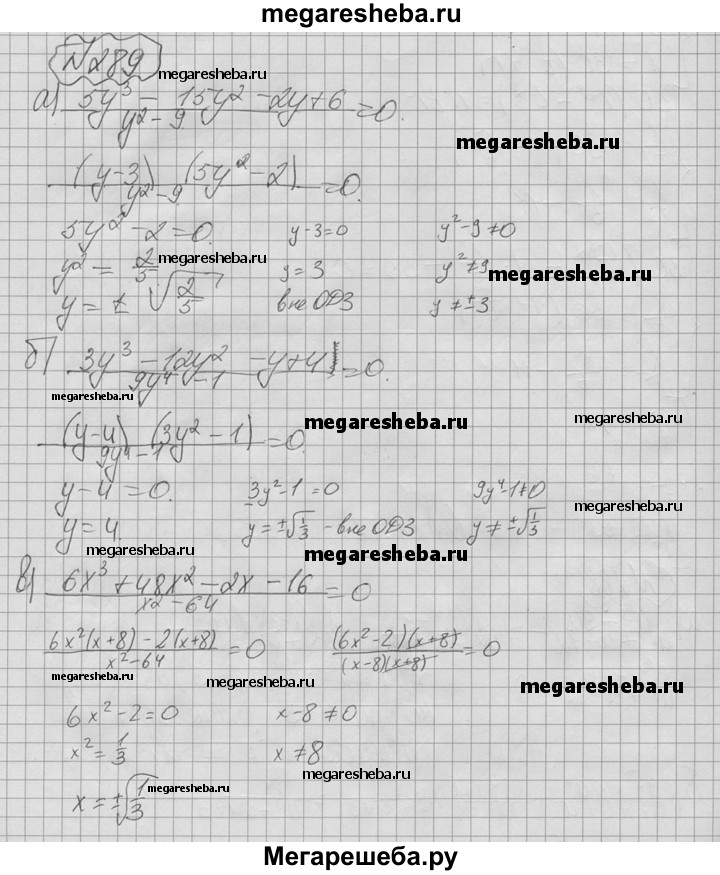 megaresheba.ru
№289
megaresheba.ru
а) (5y³ − 15y² − 2y + 6)/(y² − 9) = 0.
megaresheba.ru
(y−3) (5y² − 2)/(y² − 9) = 0.
5y² − 2 = 0. y − 3 = 0 y² − 9 ≠ 0
y² = 2/5 megaresheba.ru y = 3 y² ≠ 9 megaresheba.ru
y = ± √(2/5) вне ОДЗ y ≠ ± 3
б) (3y³ − 12y² − y + 4)/(9y⁴ − 1) = 0.
megaresheba.ru megaresheba.ru megaresheba.ru
(y−4) (3y² − 1)/(9y⁴ − 1) = 0.
y − 4 = 0. 3y² − 1 = 0 9y⁴ − 1 ≠ 0
megaresheba.ru
y = 4. y = ±√(1/3) - вне ОДЗ y ≠ ±√(1/3)
megaresheba.ru megaresheba.ru
в) (6x³ + 48x² − 2x − 16)/(x² − 64) = 0
(6x²(x+8) − 2(x+8))/(x² − 64) = 0 ((6x² − 2)(x+8))/((x−8)(x+8)) = 0
megaresheba.ru megaresheba.ru megaresheba.ru
6x² − 2 = 0 x − 8 ≠ 0
x² = 1/3 x ≠ 8
megaresheba.ru
x = ±√(1/3) megaresheba.ru
Мегарешеба.ру